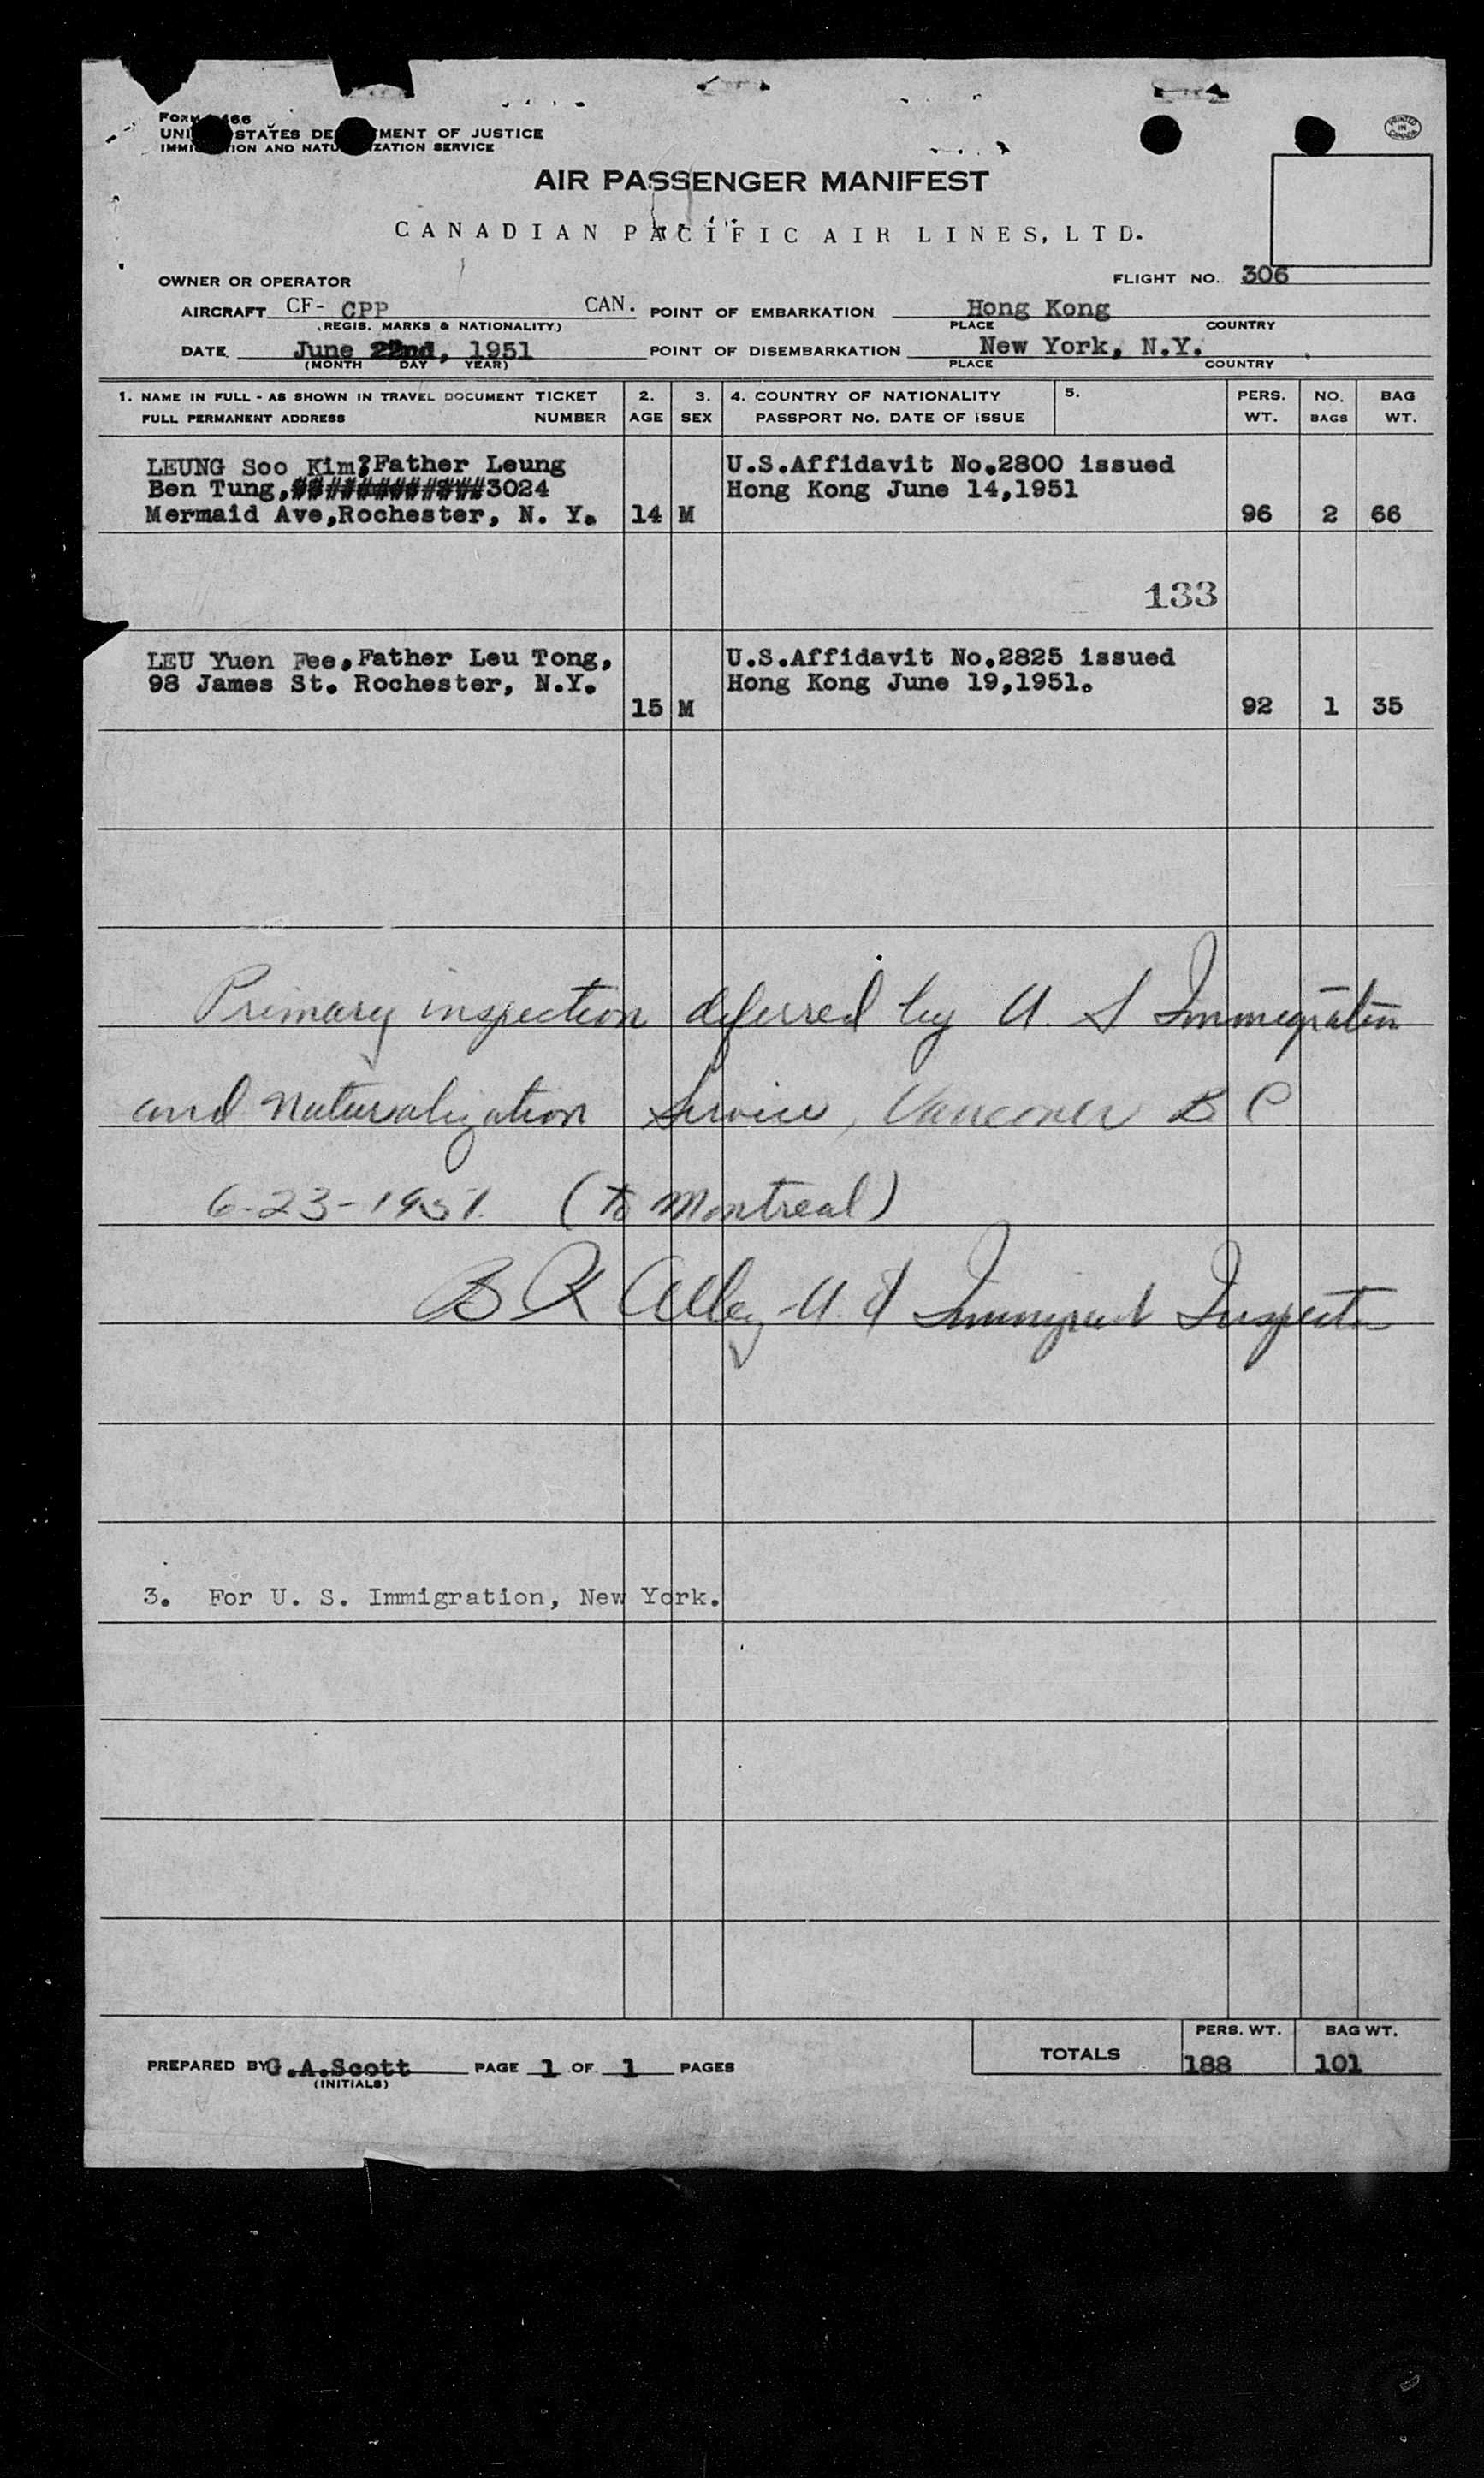 FORM 466
UNI STATES DE MENT OF JUSTICE
IMMI ION AND NATU IZATION SERVICE
PRINTED IN CANADA
AIR PASSENGER MANIFEST
CANADIAN PACIFIC AIR LINES, LTD.
OWNER OR OPERATOR FLIGHT NO. 306
AIRCRAFT CF- CPP CAN. POINT OF EMBARKATION Hong Kong
(REGIS. MARKS & NATIONALITY) PLACE COUNTRY
DATE June 22nd, 1951 POINT OF DISEMBARKATION New York, N.Y.
(MONTH DAY YEAR) PLACE COUNTRY
1. NAME IN FULL - AS SHOWN IN TRAVEL DOCUMENT TICKET 2. 3. 4. COUNTRY OF NATIONALITY 5. PERS. NO. BAG
FULL PERMANENT ADDRESS NUMBER AGE SEX PASSPORT NO. DATE OF ISSUE WT. BAGS WT.
LEUNG Soo Kim, Father Leung U.S.Affidavit No.2800 issued
Ben Tung, ############3024 Hong Kong June 14,1951
Mermaid Ave,Rochester, N. Y. 14 M 96 2 66
133
LEU Yuen Fee, Father Leu Tong, U.S.Affidavit No.2825 issued
98 James St. Rochester, N.Y. Hong Kong June 19,1951.
15 M 92 1 35
Primary inspection deferred by U. S Immigration
and Naturalization Service, Vancouver B C
6-23-1951. (to Montreal)
B R Alley U. S Immigrant Inspector
3. For U. S. Immigration, New York.
PERS. WT. BAG WT.
PREPARED BY G.A.Scott PAGE 1 OF 1 PAGES TOTALS 188 101
(INITIALS)